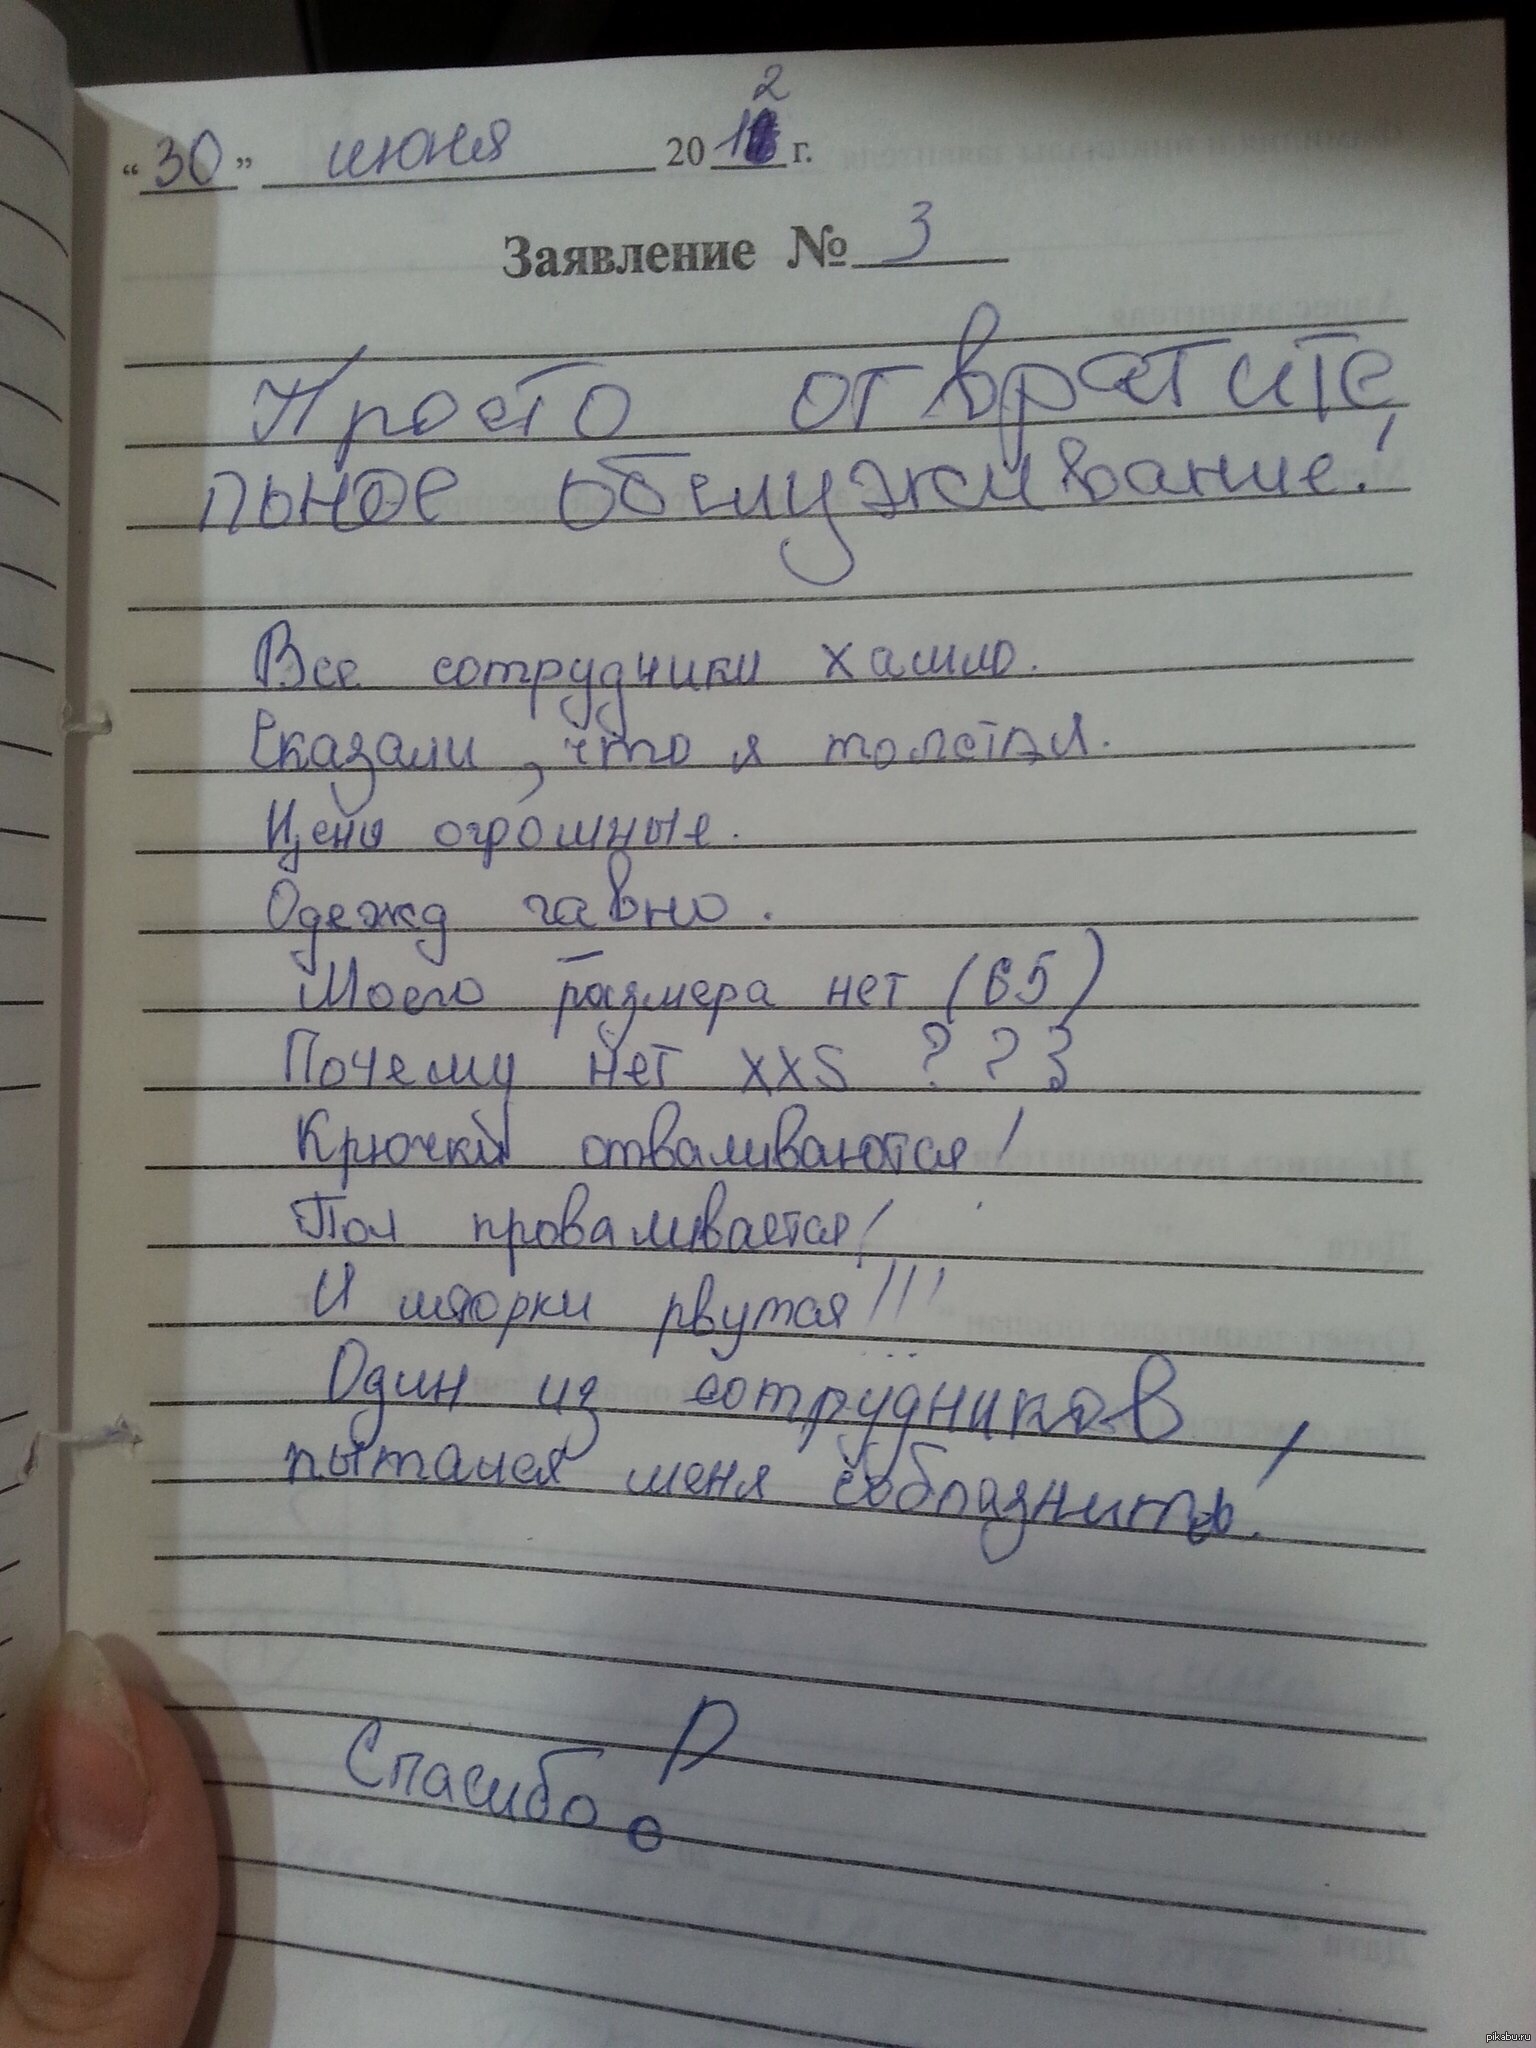 "30" июня 2012 г.
Заявление № 3
Просто отвратите
льное обслуживание!
Все сотрудники хамло.
Сказали, что я толстая.
Цены огромные.
Одежд гавно.
Моего размера нет (65)
Почему нет XXS ???
Крючки отваливаются!
Пол проваливается!
И шторки рвутся!!!
Один из сотрудников
пытался меня соблазнить!
Спасибо
pikabu.ru